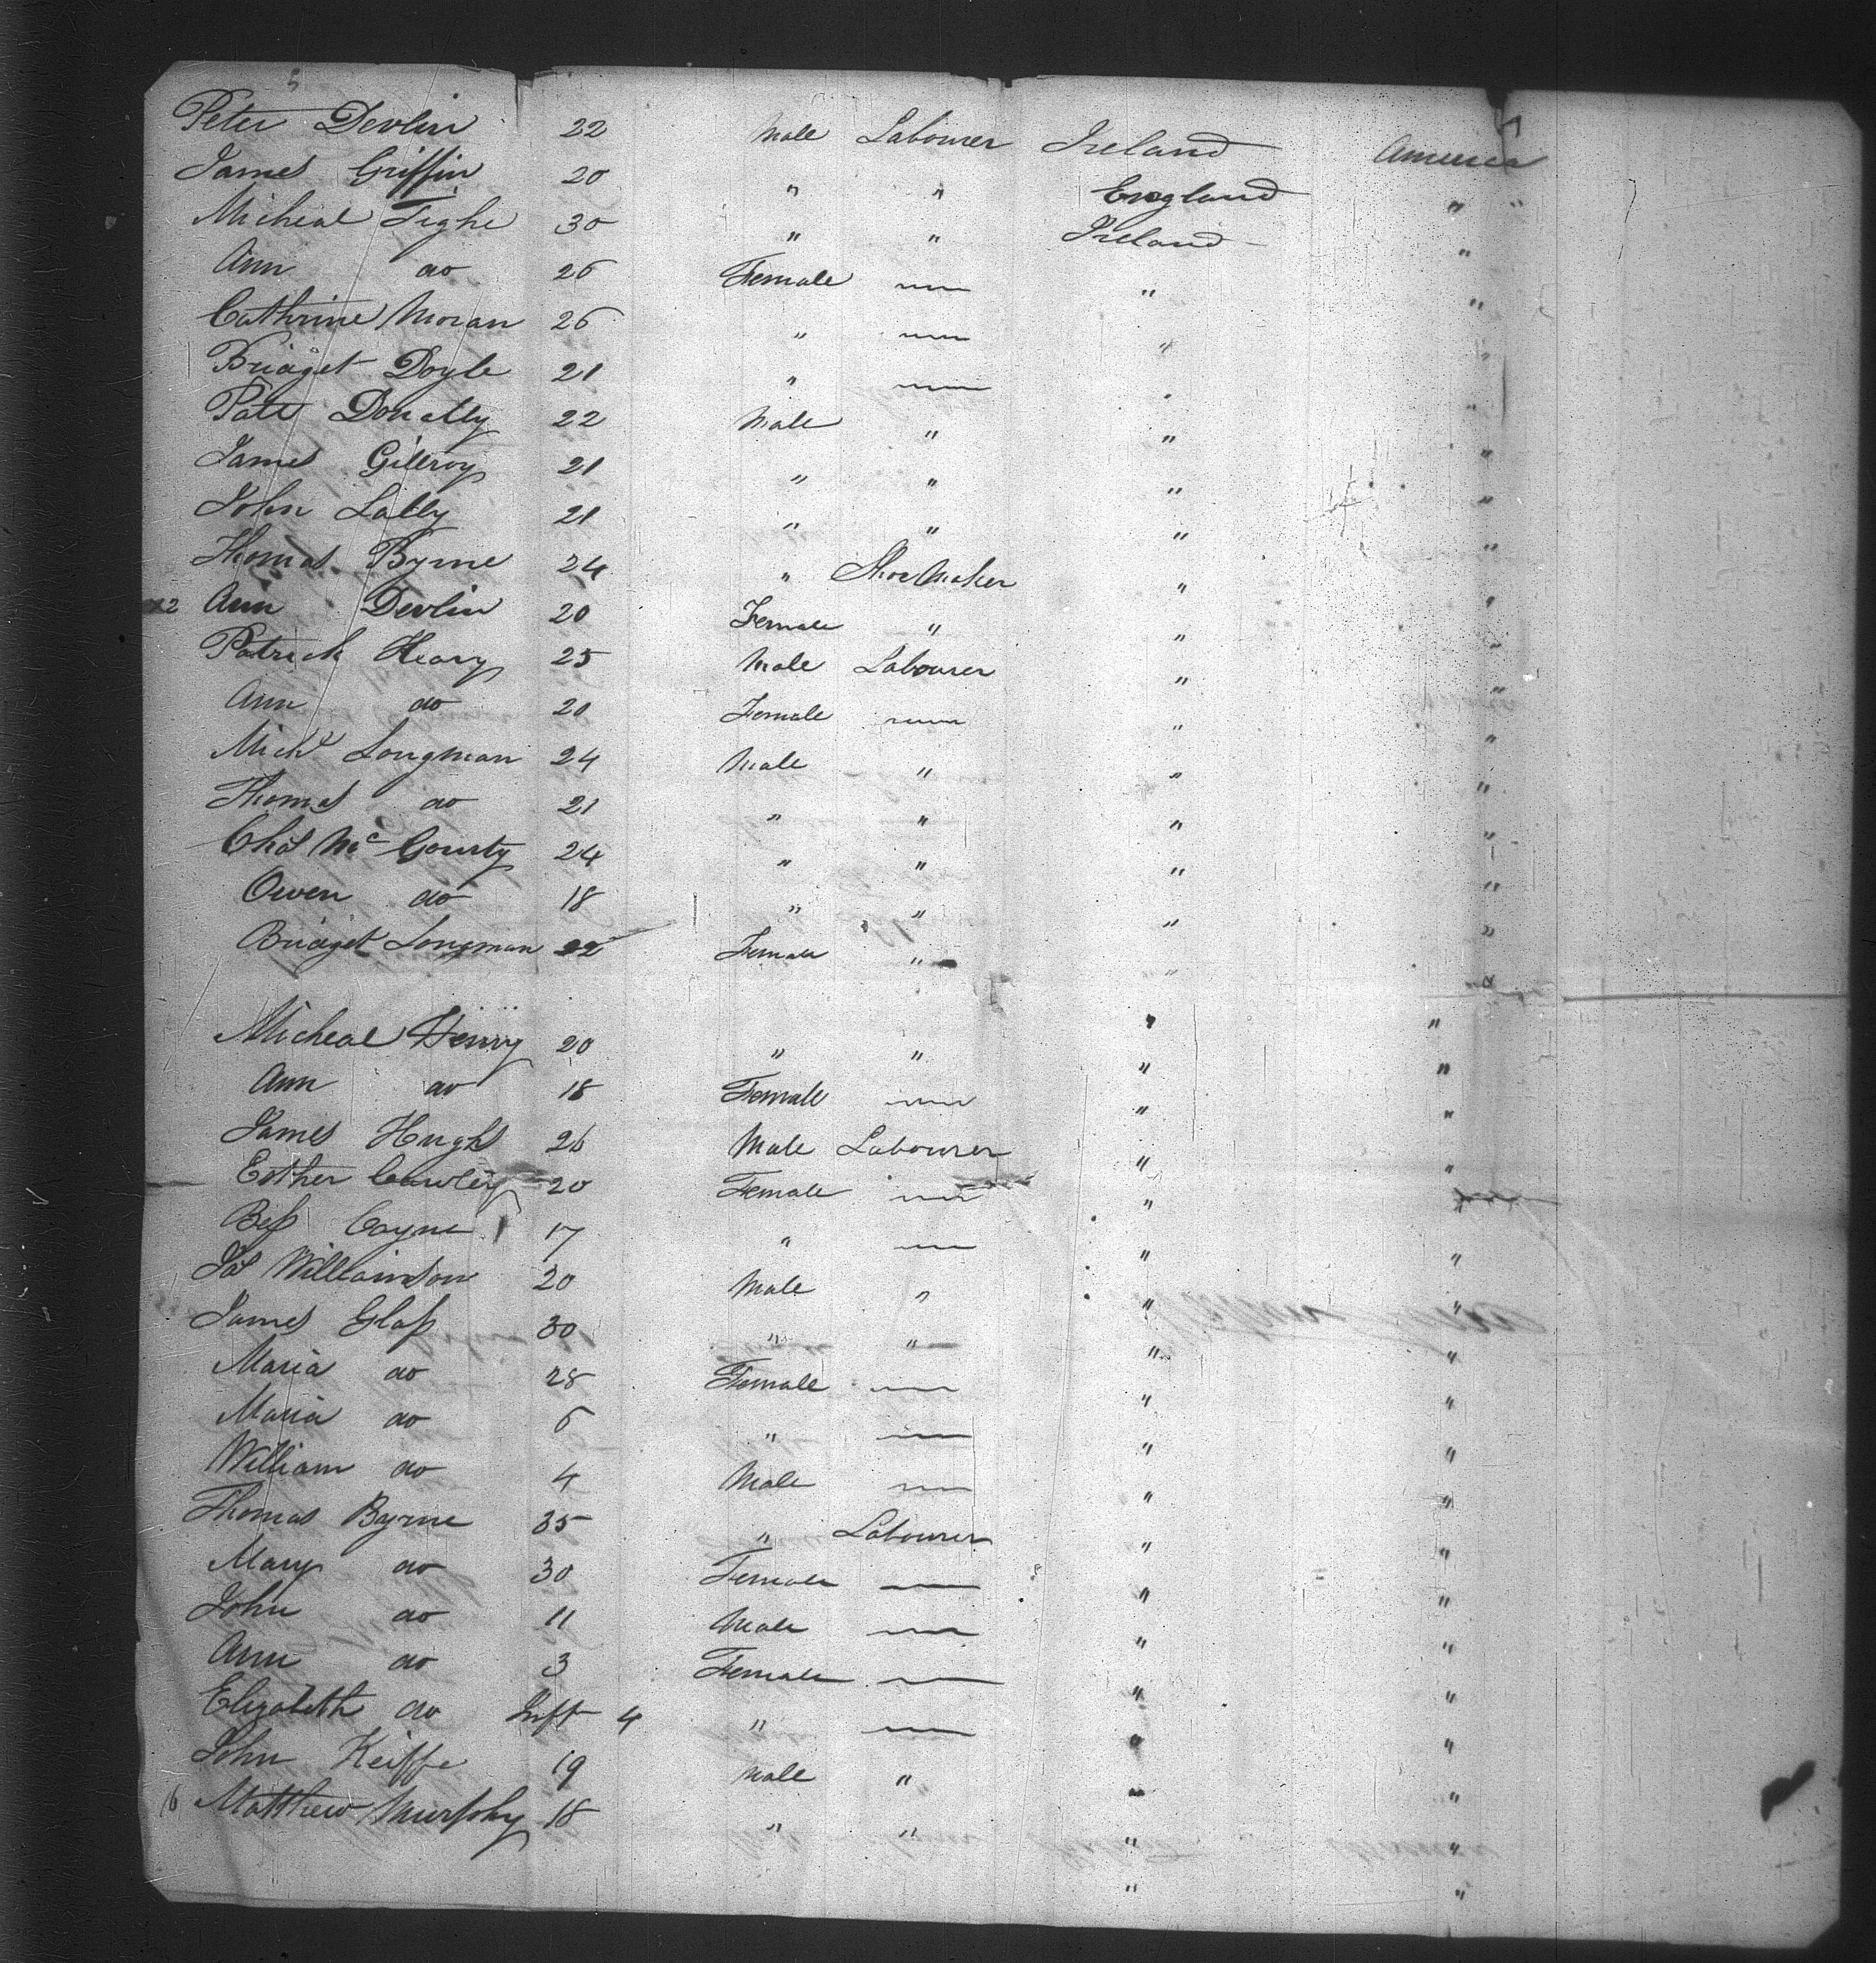 Peter Devlin 22 Male Labourer Ireland America
James Griffin 20 " " England " "
Micheal Tighe 30 " " Ireland "
Ann do 26 Female — " "
Cathrine Moran 26 " — " "
Bridget Doyle 21 " — " "
Patt Donally 22 Male " " "
James Gillroy 21 " " " "
John Lally 21 " " " "
Thomas Byrne 24 " Shoe Maker " "
12 Ann Devlin 20 Female " " "
Patrick Heary 25 Male Labourer " "
Ann do 20 Female — " "
Michl Longman 24 Male " " "
Thomas do 21 " " " "
Chas Mc Gourty 24 " " " "
Owen do 18 " " " "
Bridget Longman 22 Female " " "
Micheal Henry 20 " " " "
Ann do 18 Female — " "
James Hughs 26 Male Labourer " "
Esther Cawley 20 Female — " "
Bess Coyne 17 " — " "
Jas Williamson 20 Male " " "
James Glass 30 " " " "
Maria do 28 Female — " "
Maria do 6 " — " "
William do 4 Male — " "
Thomas Byrne 35 " Labourer " "
Mary do 30 Female — " "
John do 11 Male — " "
Ann do 3 Female — " "
Elizabeth do Inft 4 " — " "
John Keiffe 19 Male " " "
16 Matthew Murphy 18 " " " "
" "